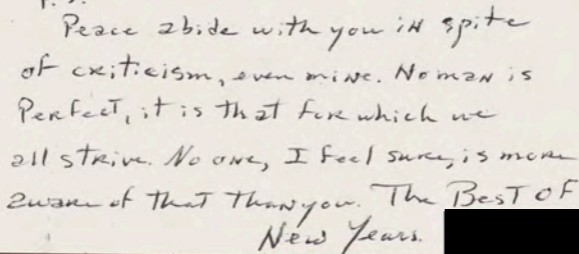 P.S.
Peace abide with you in spite
of criticism, even mine. No man is
Perfect, it is that for which we
all strive. No one, I feel sure, is more
aware of that than you. The Best OF
New Years.